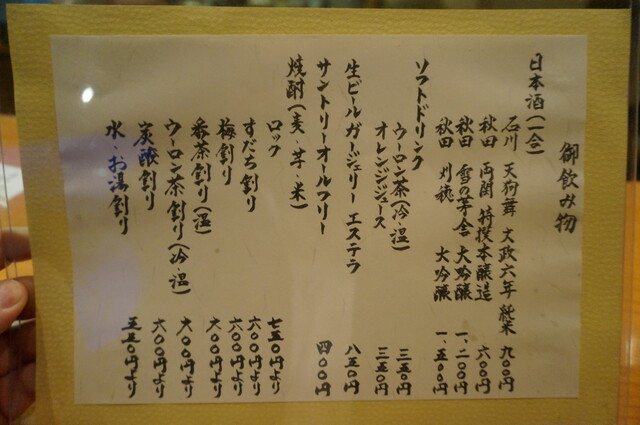 御飲み物
日本酒(一合)
石川 天狗舞 文政六年 純米 九〇〇円
秋田 両関 特撰本醸造 六〇〇円
秋田 雪の茅舎 大吟醸 一、二〇〇円
秋田 刈穂 大吟醸 一、五〇〇円
ソフトドリンク
ウーロン茶(冷・温) 三五〇円
オレンジジュース 三五〇円
生ビール ガージェリー エステラ 八五〇円
サントリーオールフリー 四〇〇円
焼酎(麦・芋・米)
ロック 七五〇円より
すだち割り 六〇〇円より
梅割り 六〇〇円より
番茶割り(温) 六〇〇円より
ウーロン茶割り(冷・温) 六〇〇円より
炭酸割り 六〇〇円より
水・お湯割り 五五〇円より